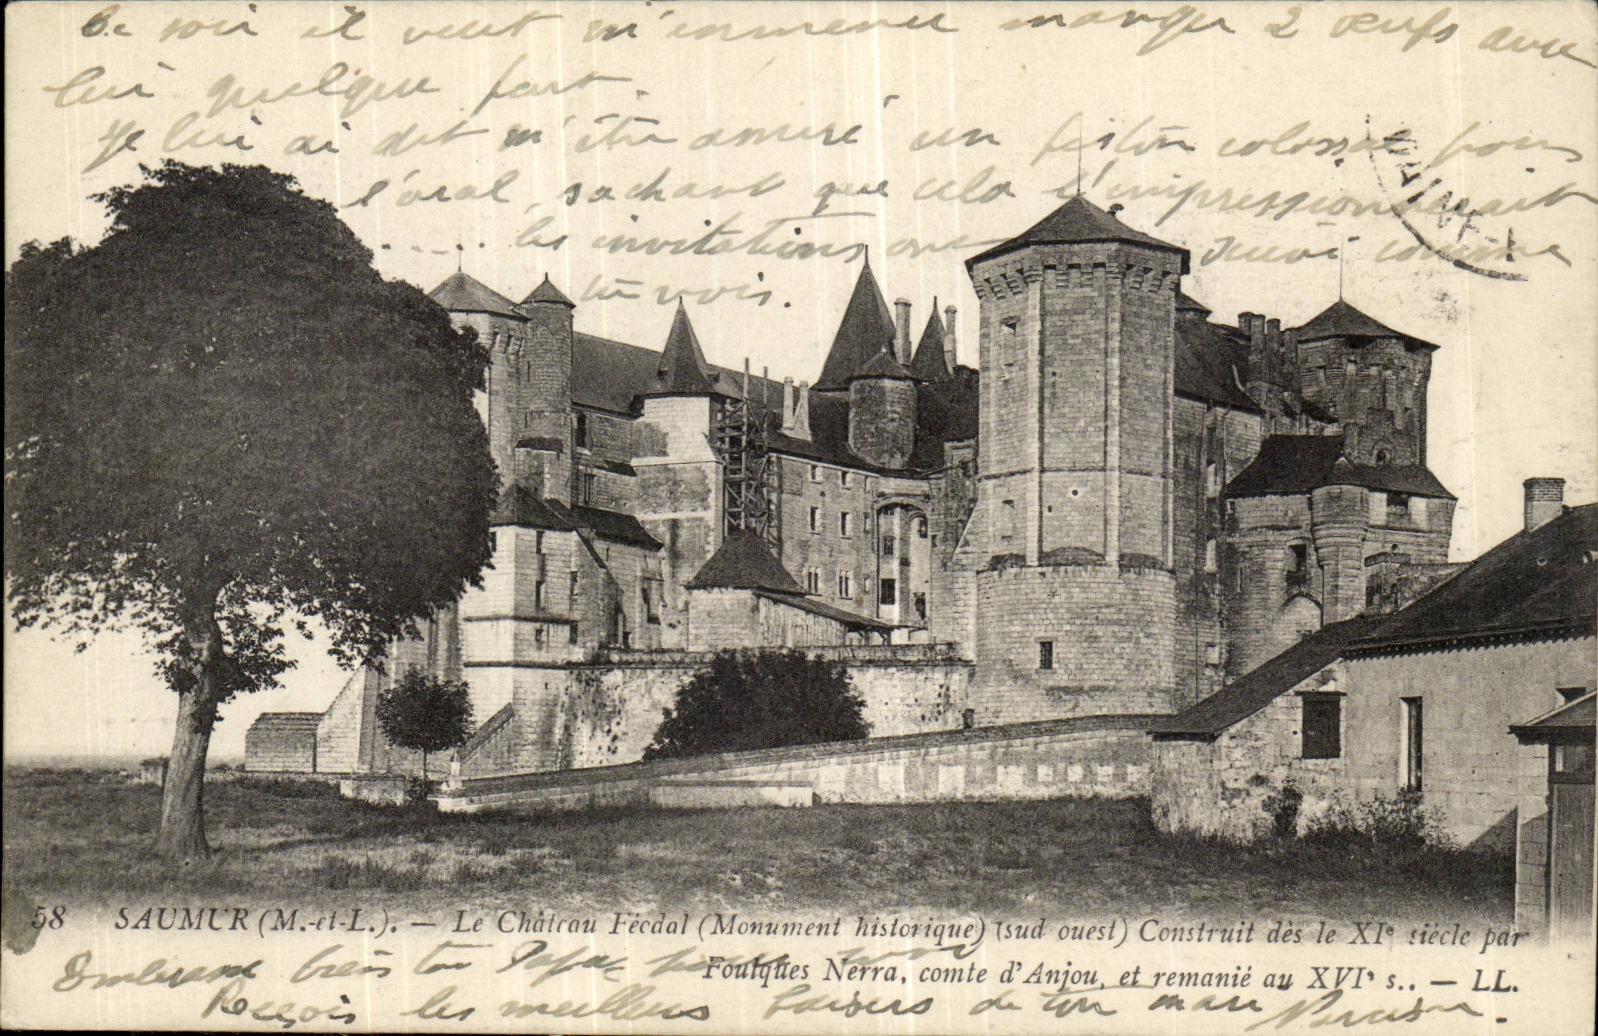 Ce soir il veut m'emmener manger 2 œufs avec
lui quelque part.
Je lui ai dit m'être amusé un colossal pour
l'oral, sachant que cela l'impressionnerait
..... les invitations ont comme
tu vois.
58 SAUMUR (M.-et-L.). — Le Château Féodal (Monument historique) (sud ouest) Construit dès le XIe siècle par
Foulques Nerra, comte d'Anjou, et remanié au XVIe s.. — LL.
Embrasse bien ton Papa pour moi
Reçois les meilleurs baisers de ton